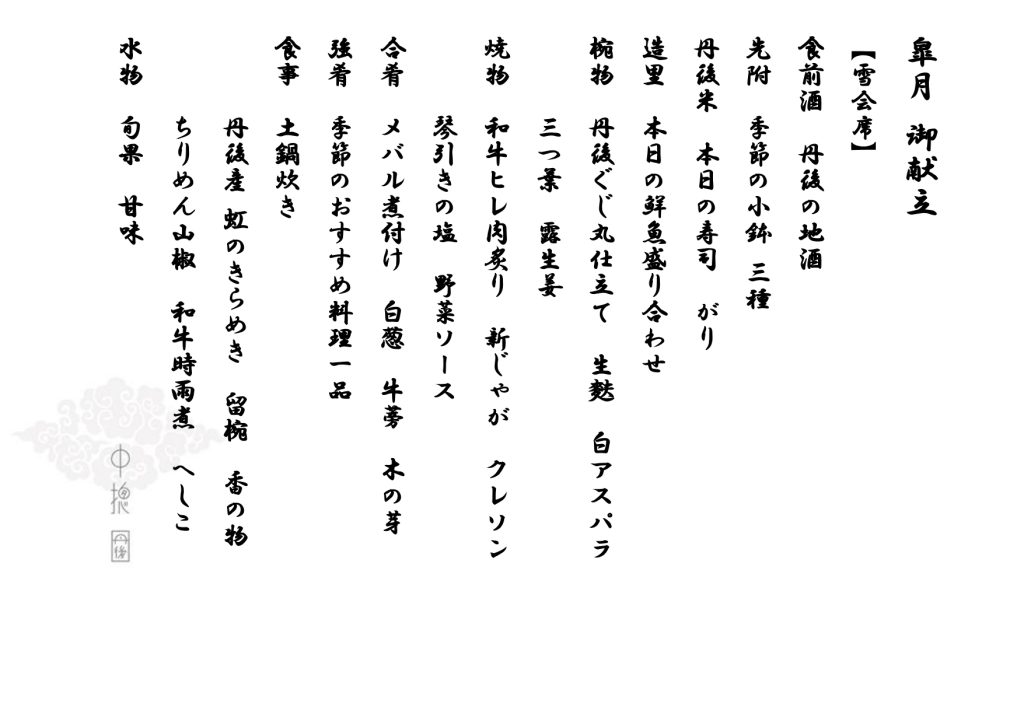 皐月 御献立
【雪会席】
食前酒 丹後の地酒
先附 季節の小鉢 三種
丹後米 本日の寿司 がり
造里 本日の鮮魚盛り合わせ
椀物 丹後ぐじ丸仕立て 生麩 白アスパラ
三つ葉 露生姜
焼物 和牛ヒレ肉炙り 新じゃが クレソン
琴引きの塩 野菜ソース
合肴 メバル煮付け 白葱 牛蒡 木の芽
強肴 季節のおすすめ料理一品
食事 土鍋炊き
丹後産 虹のきらめき 留椀 香の物
ちりめん山椒 和牛時雨煮 へしこ
水物 旬果 甘味
丹後